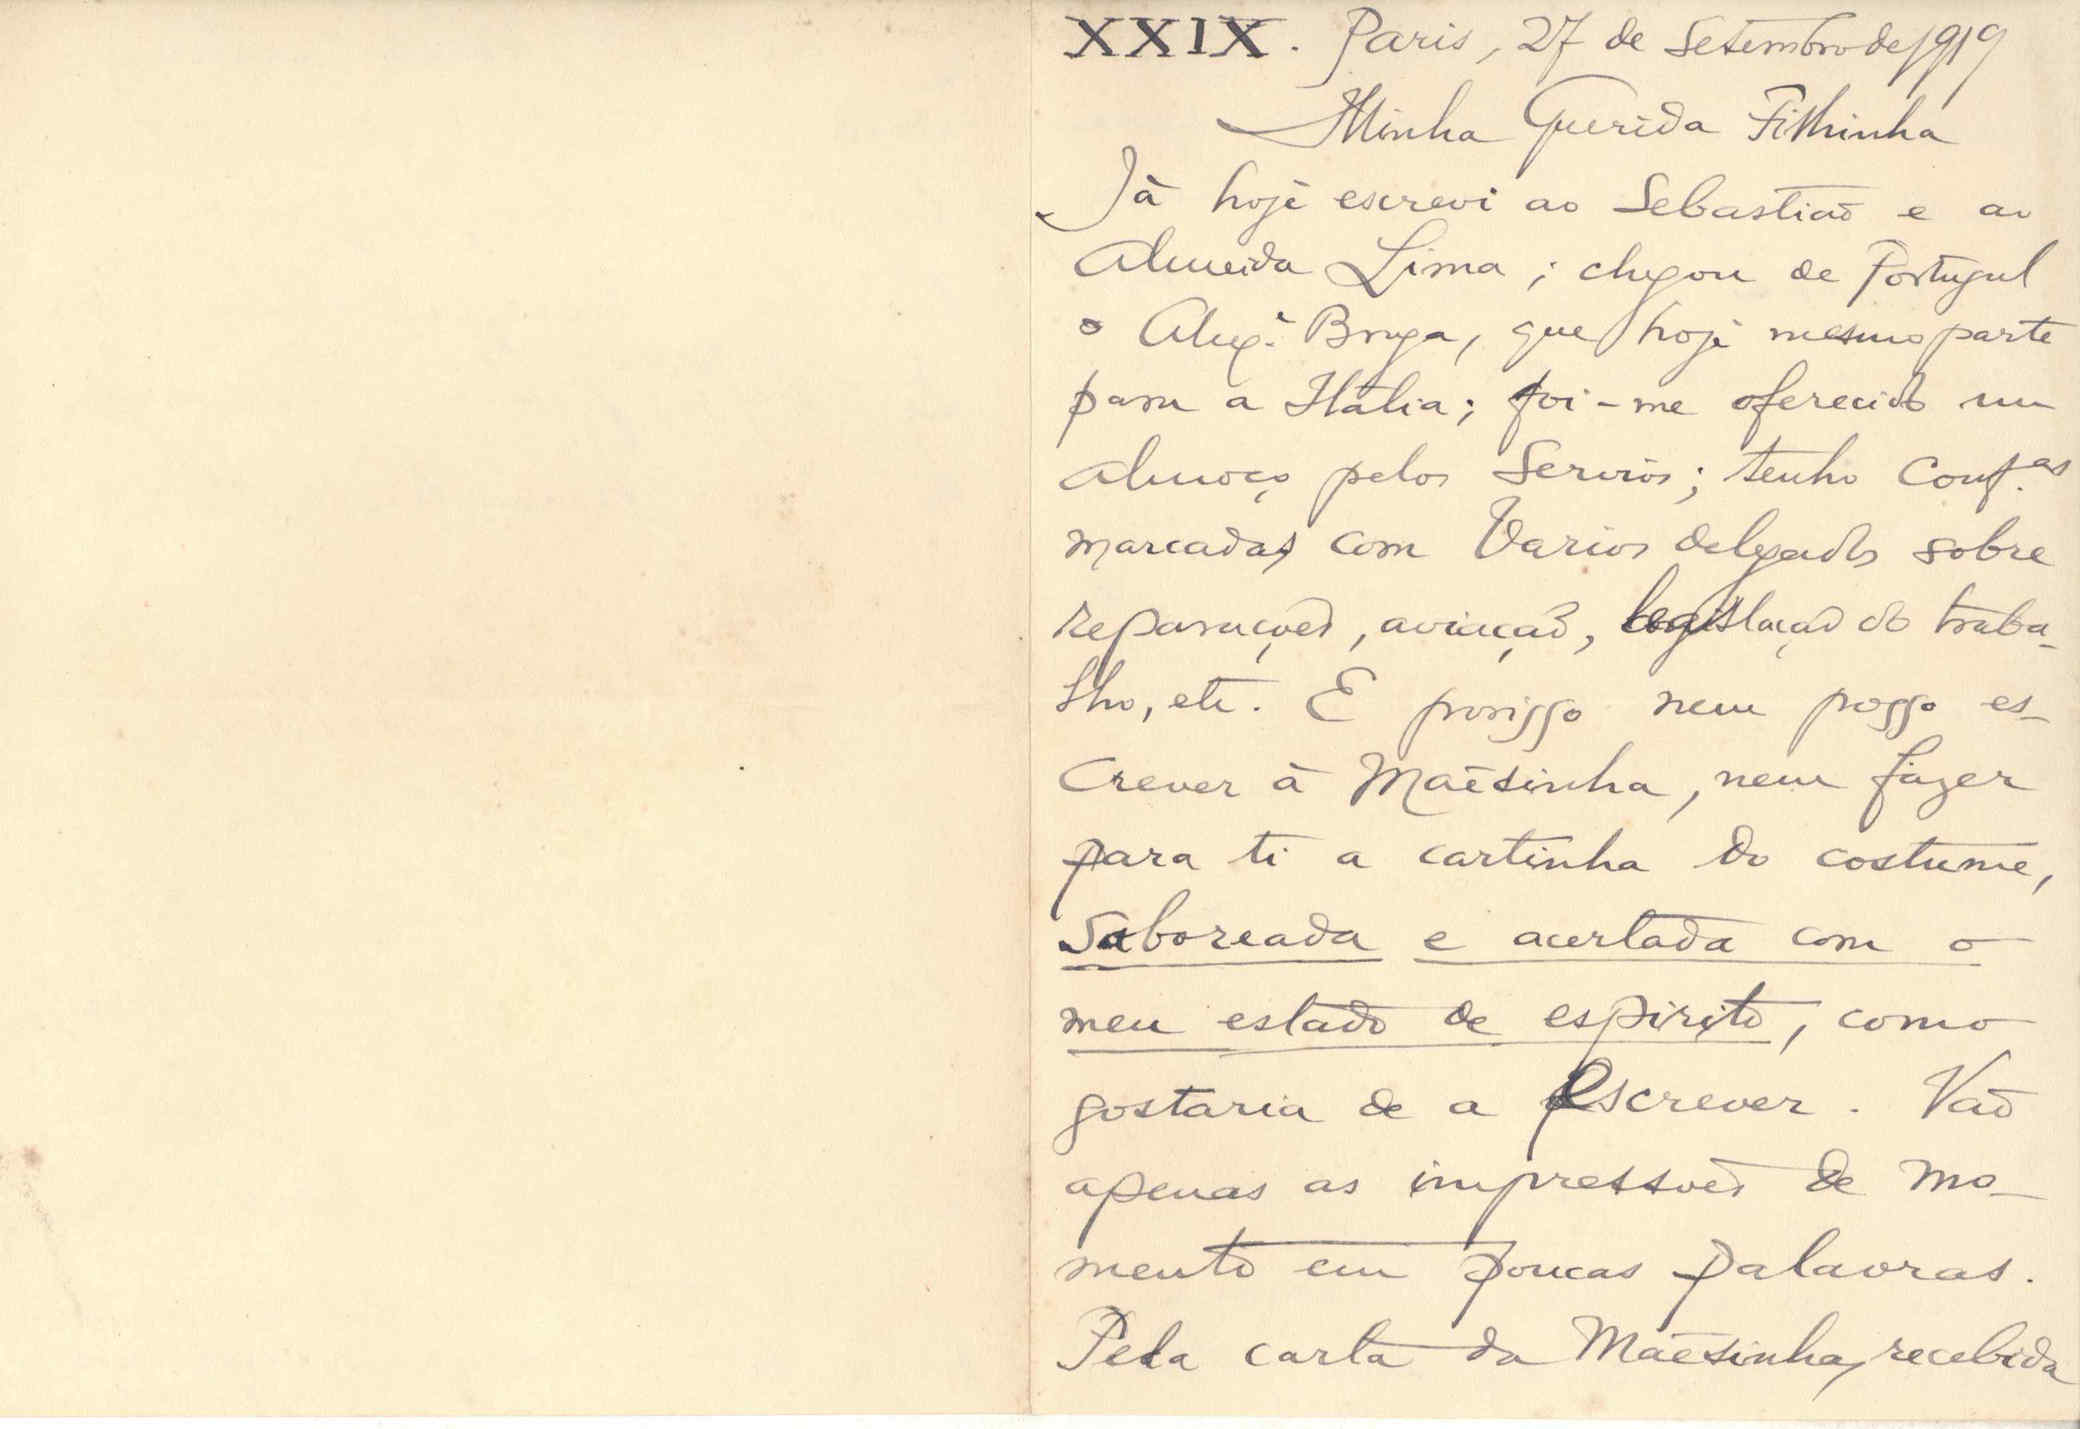 XXIX. Paris, 27 de Setembro de 1919
Minha Querida Filhinha
Já hoje escrevi ao Sebastião e ao
Almeida Lima; chegou de Portugal
o Alex.e Braga, que hoje mesmo parte
para a Itália; foi-me oferecido um
almoço pelos Servios; tenho Conf.as
marcadas com Varios delegados sobre
reparações, aviação, legislação do traba-
lho, etc. E porisso nem posso es-
crever à Mãesinha, nem fazer
para ti a cartinha do costume,
saboreada e acertada com o
meu estado de espirito, como
gostaria de a escrever. Vão
apenas as impressões de mo-
mento em poucas palavras.
Pela carta da Mãesinha, recebida